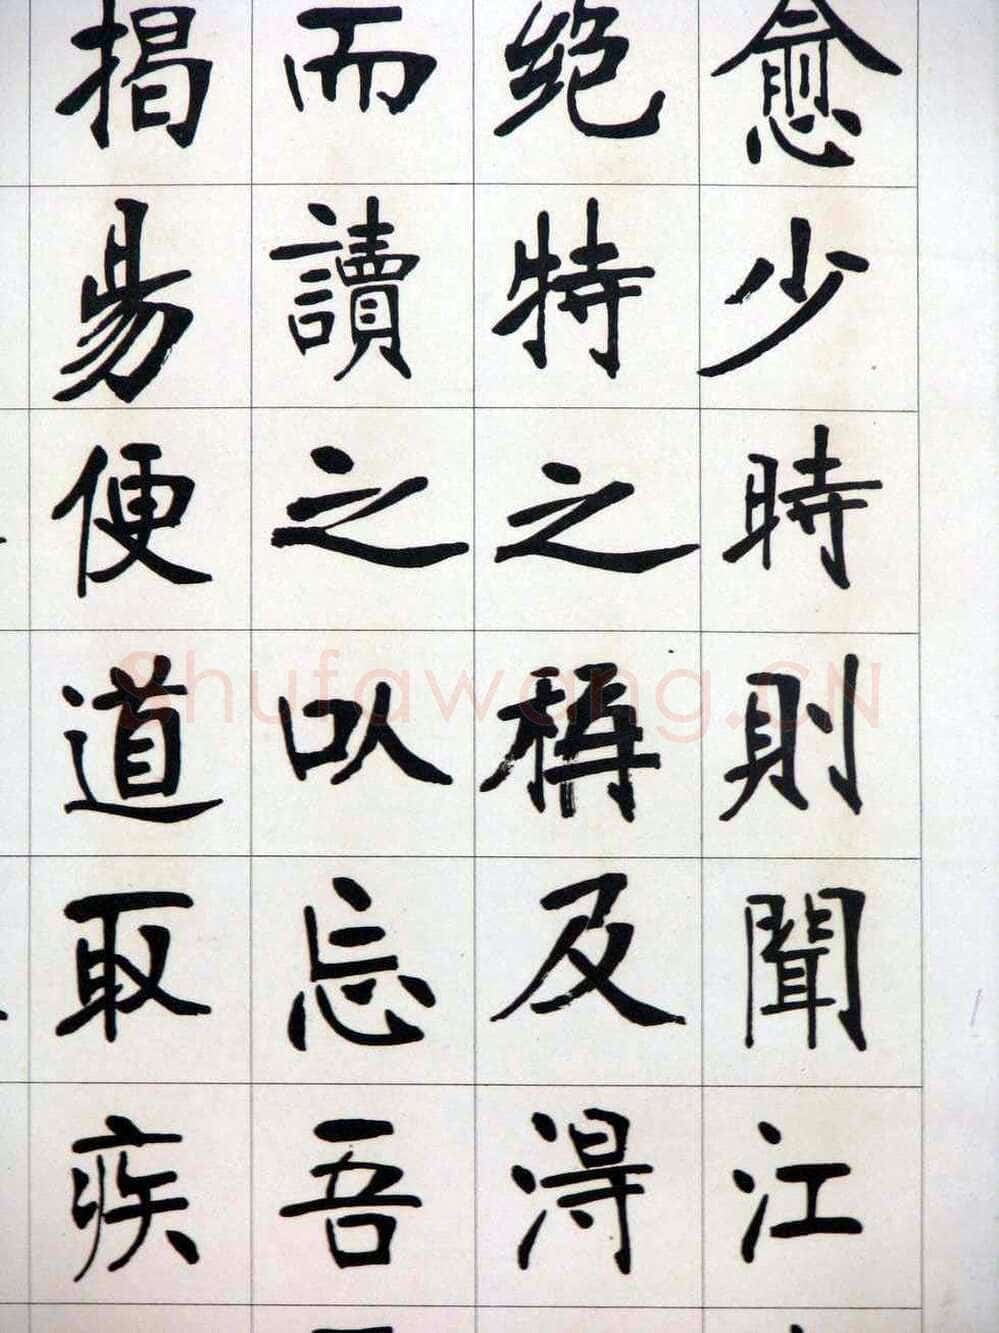 愈少時則聞江
絶特之稱及淂
而讀之以忘吾
揭昜便道取疾
Shufawang.CN